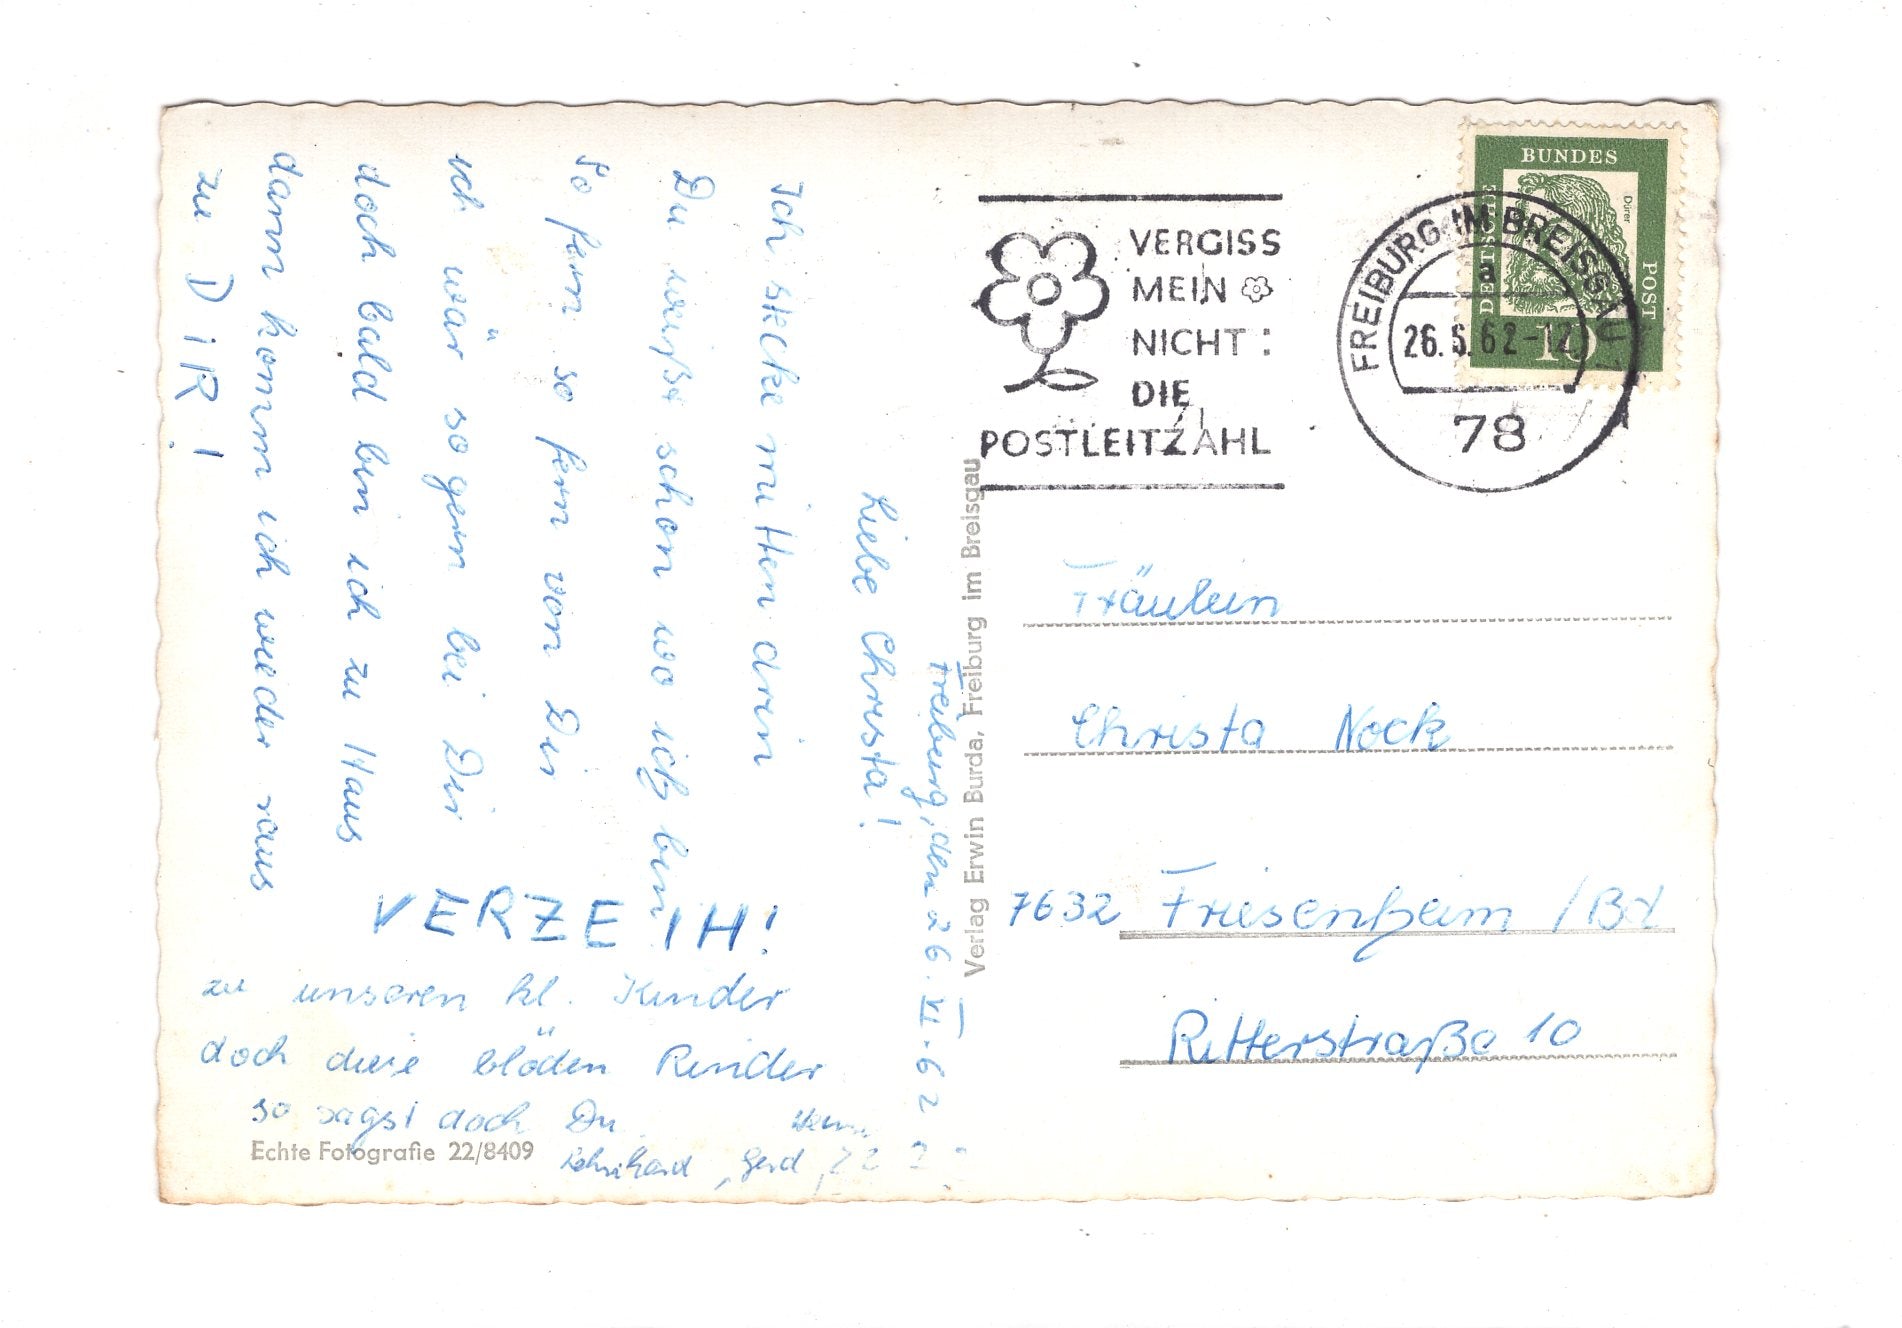 Freiburg, den 26. VI. 62
Liebe Christa!
Ich stecke mitten drin
Du weißt schon wo ich bin
So fern so fern von Dir
ich wär so gern bei Dir
doch bald bin ich zu Haus
dann komm ich wieder raus
zu DIR!
VERZEIH!
zu unseren kl. Kinder
doch diese blöden Rinder
so sagst doch Du
Gerd,
Echte Fotografie 22/8409
Verlag Erwin Burda, Freiburg im Breisgau
VERGISS
MEIN
NICHT:
DIE
POSTLEITZAHL
FREIBURG IM BREISGAU 1
a
26.6.62-12
78
DEUTSCHE
BUNDES
POST
Dürer
10
Fräulein
Christa Nock
7632 Friesenheim /Bd
Ritterstraße 10